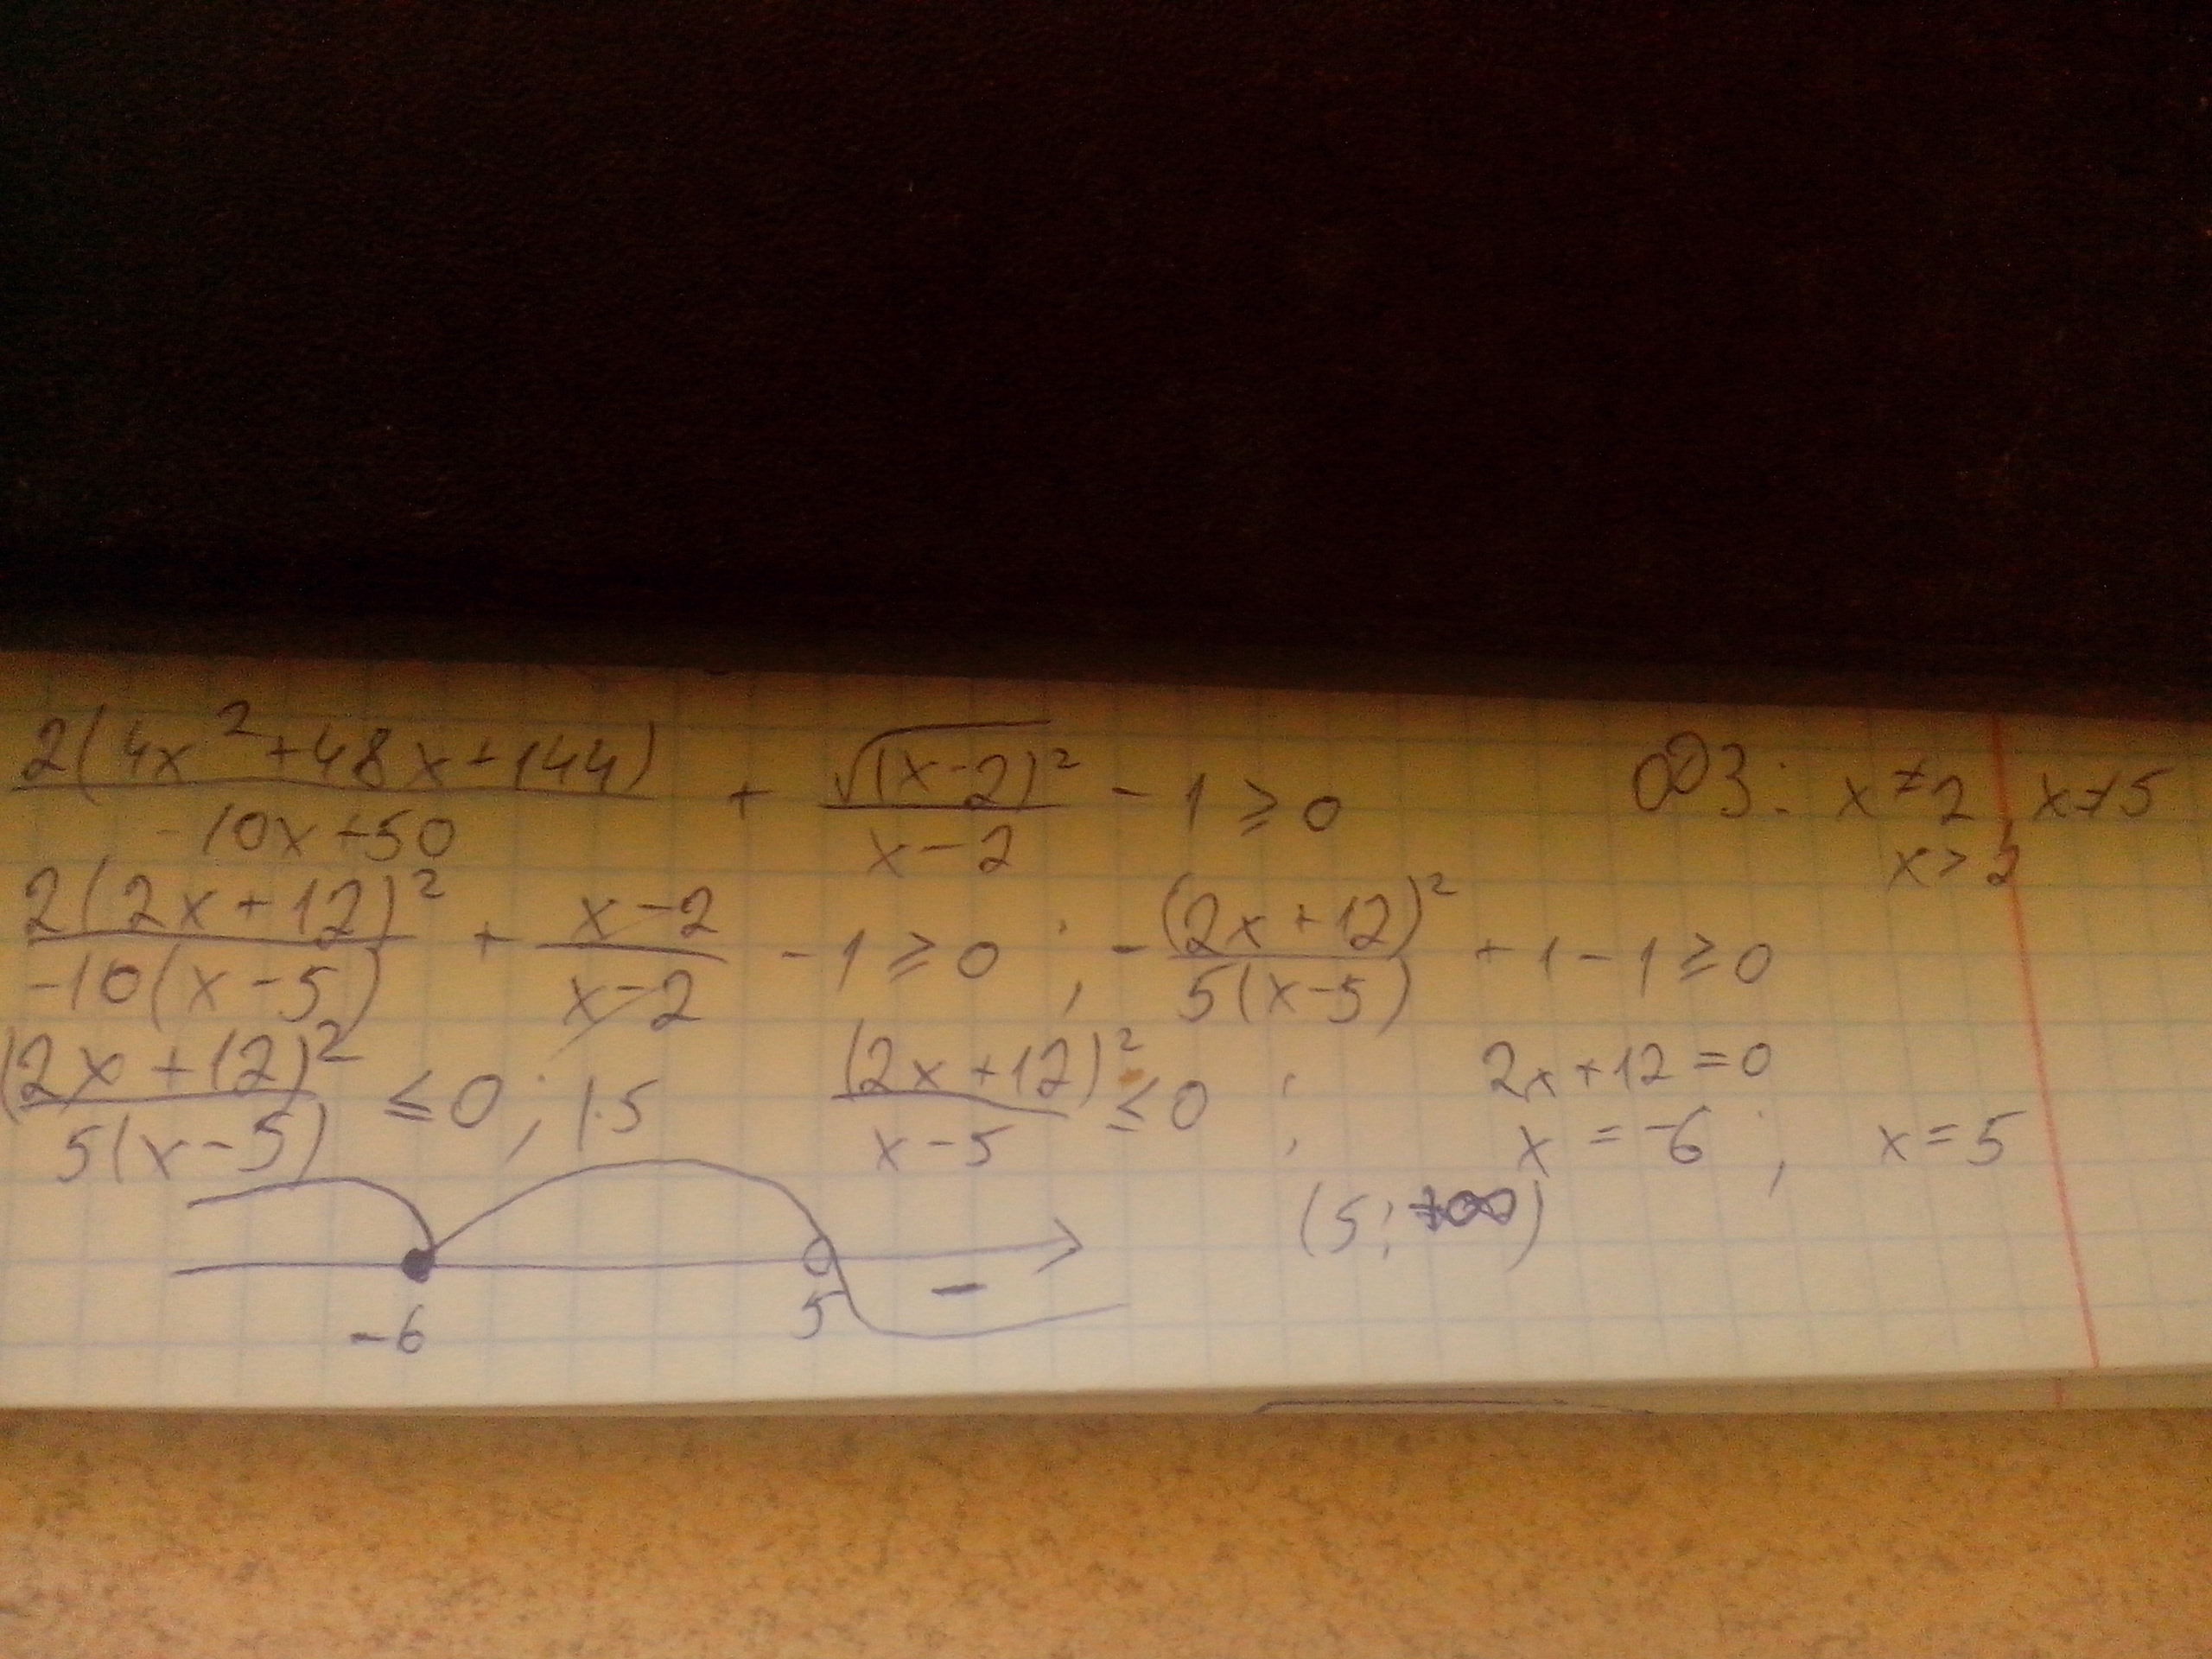 2(4x²+48x+144)/-10x+50 + √(x-2)²/x-2 - 1 ≥ 0   ОДЗ: x≠2, x≠5
x>2
2(2x+12)²/-10(x-5) + x-2/x-2 - 1 ≥ 0 ; -(2x+12)²/5(x-5) + 1 - 1 ≥ 0
(2x+12)²/5(x-5) ≤ 0 ; |·5   (2x+12)²/x-5 ≤ 0 ;   2x+12=0
x=-6 ; x=5
(5; +∞)
-6   5   -